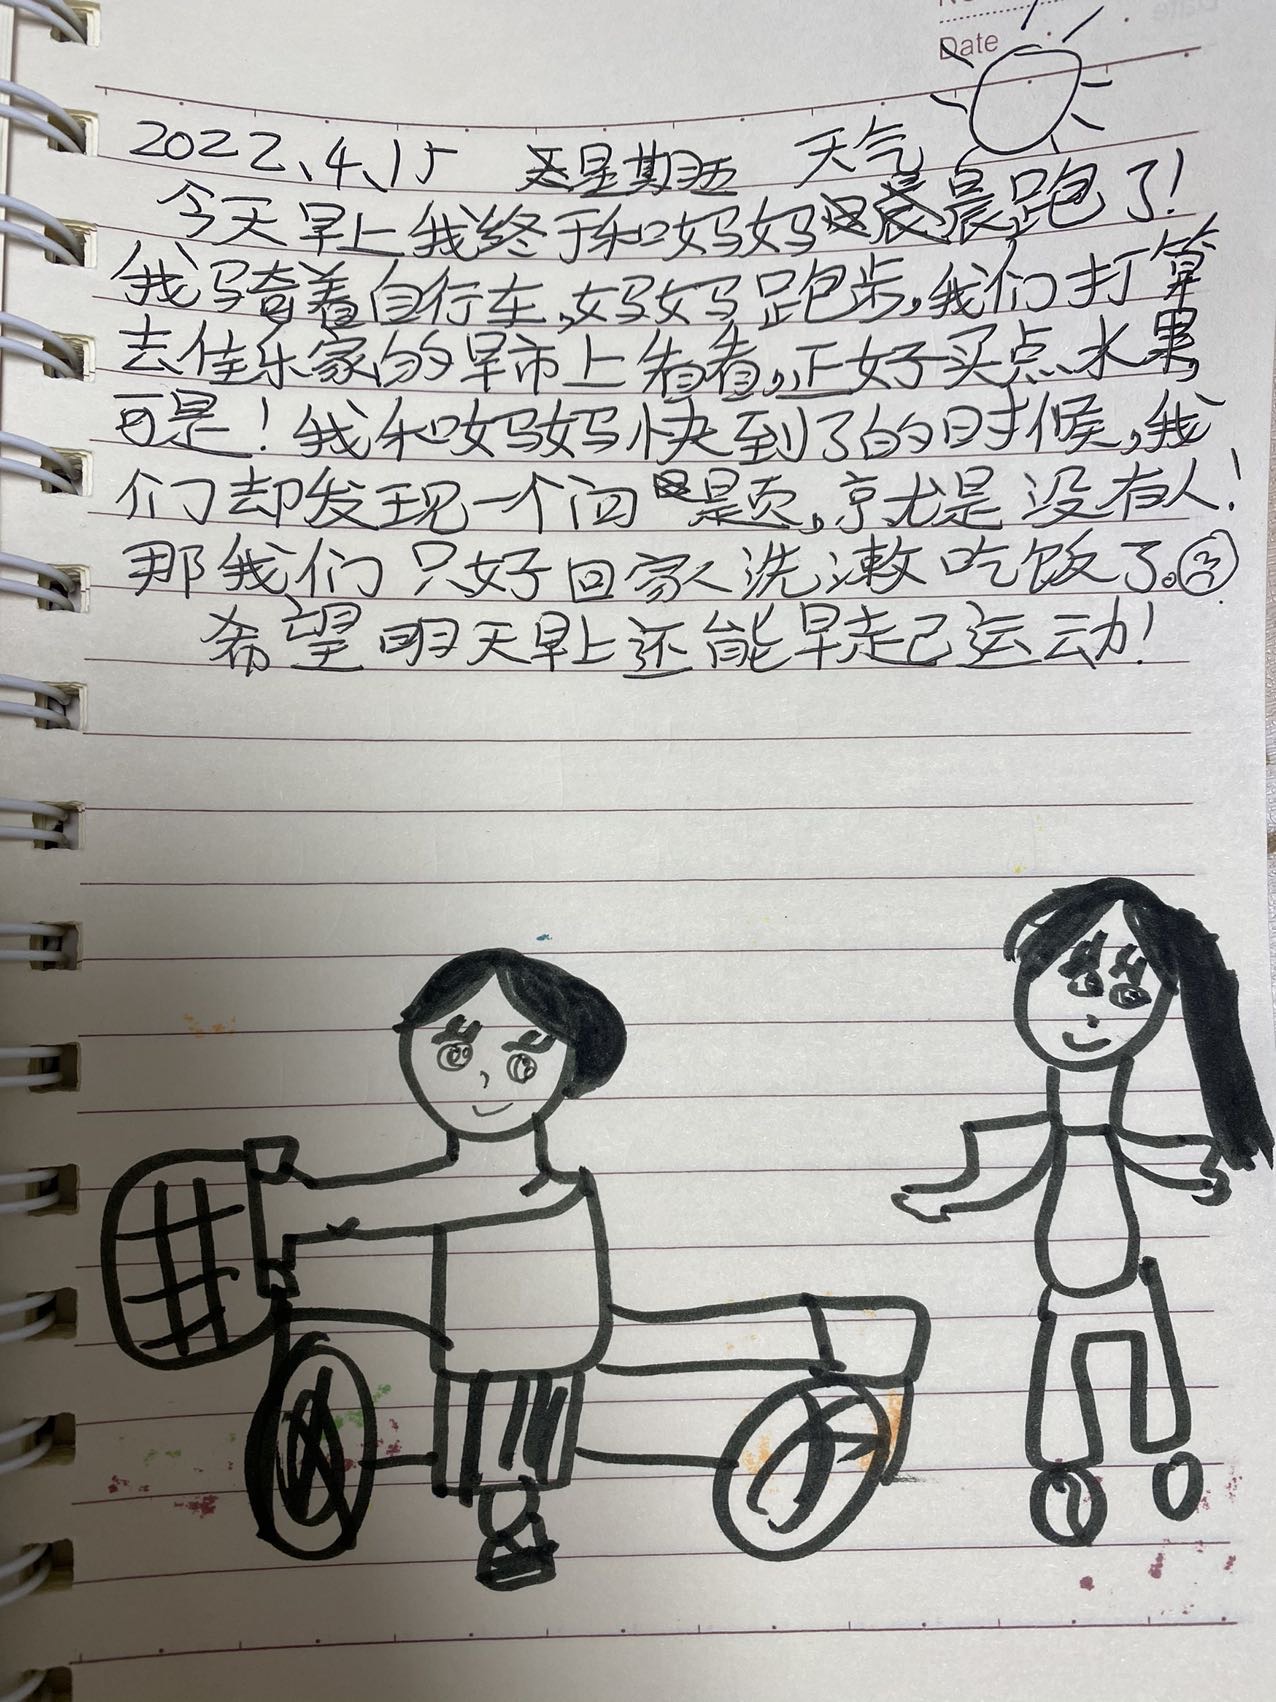 No
Date
2022.4.15 星期五 天气
今天早上我终于和妈妈晨跑了!
我骑着自行车,妈妈跑步,我们打算
去佳乐家的早市上看看,正好买点水果,
可是!我和妈妈快到了的时候,我
们却发现一个问题,就是没有人!
那我们只好回家洗漱吃饭了。
希望明天早上还能早起运动!